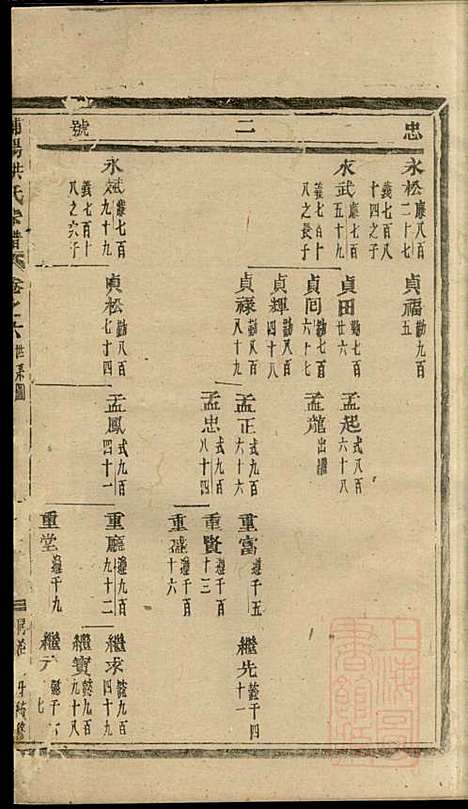 忠 二 號
永松 廉八百二十七 義七百八十四之子
貞福 勤九百五
永武 廉七百五十九 義七百十八之長子
貞田 勤七百廿六
孟起 式八百六十八
貞同 勤七百六十七
孟龍 出繼
貞輝 勤八百四十八
貞祿 勤八百八十九
孟正 式九百六十六
重富 遵千五
繼先 懿千四十一
孟忠 式九百八十四
重賢 遵千百十三
重盛 遵千百十六
永斌 廉七百九十九 義七百十八之六子
貞松 勤八百七十四
孟鳳 式九百四十一
重廳 遵九百九十二
繼求 懿九百四十九
繼寶 懿九百九十八
重堂 遵千九
浦陽洪氏宗譜
卷之六
世系圖